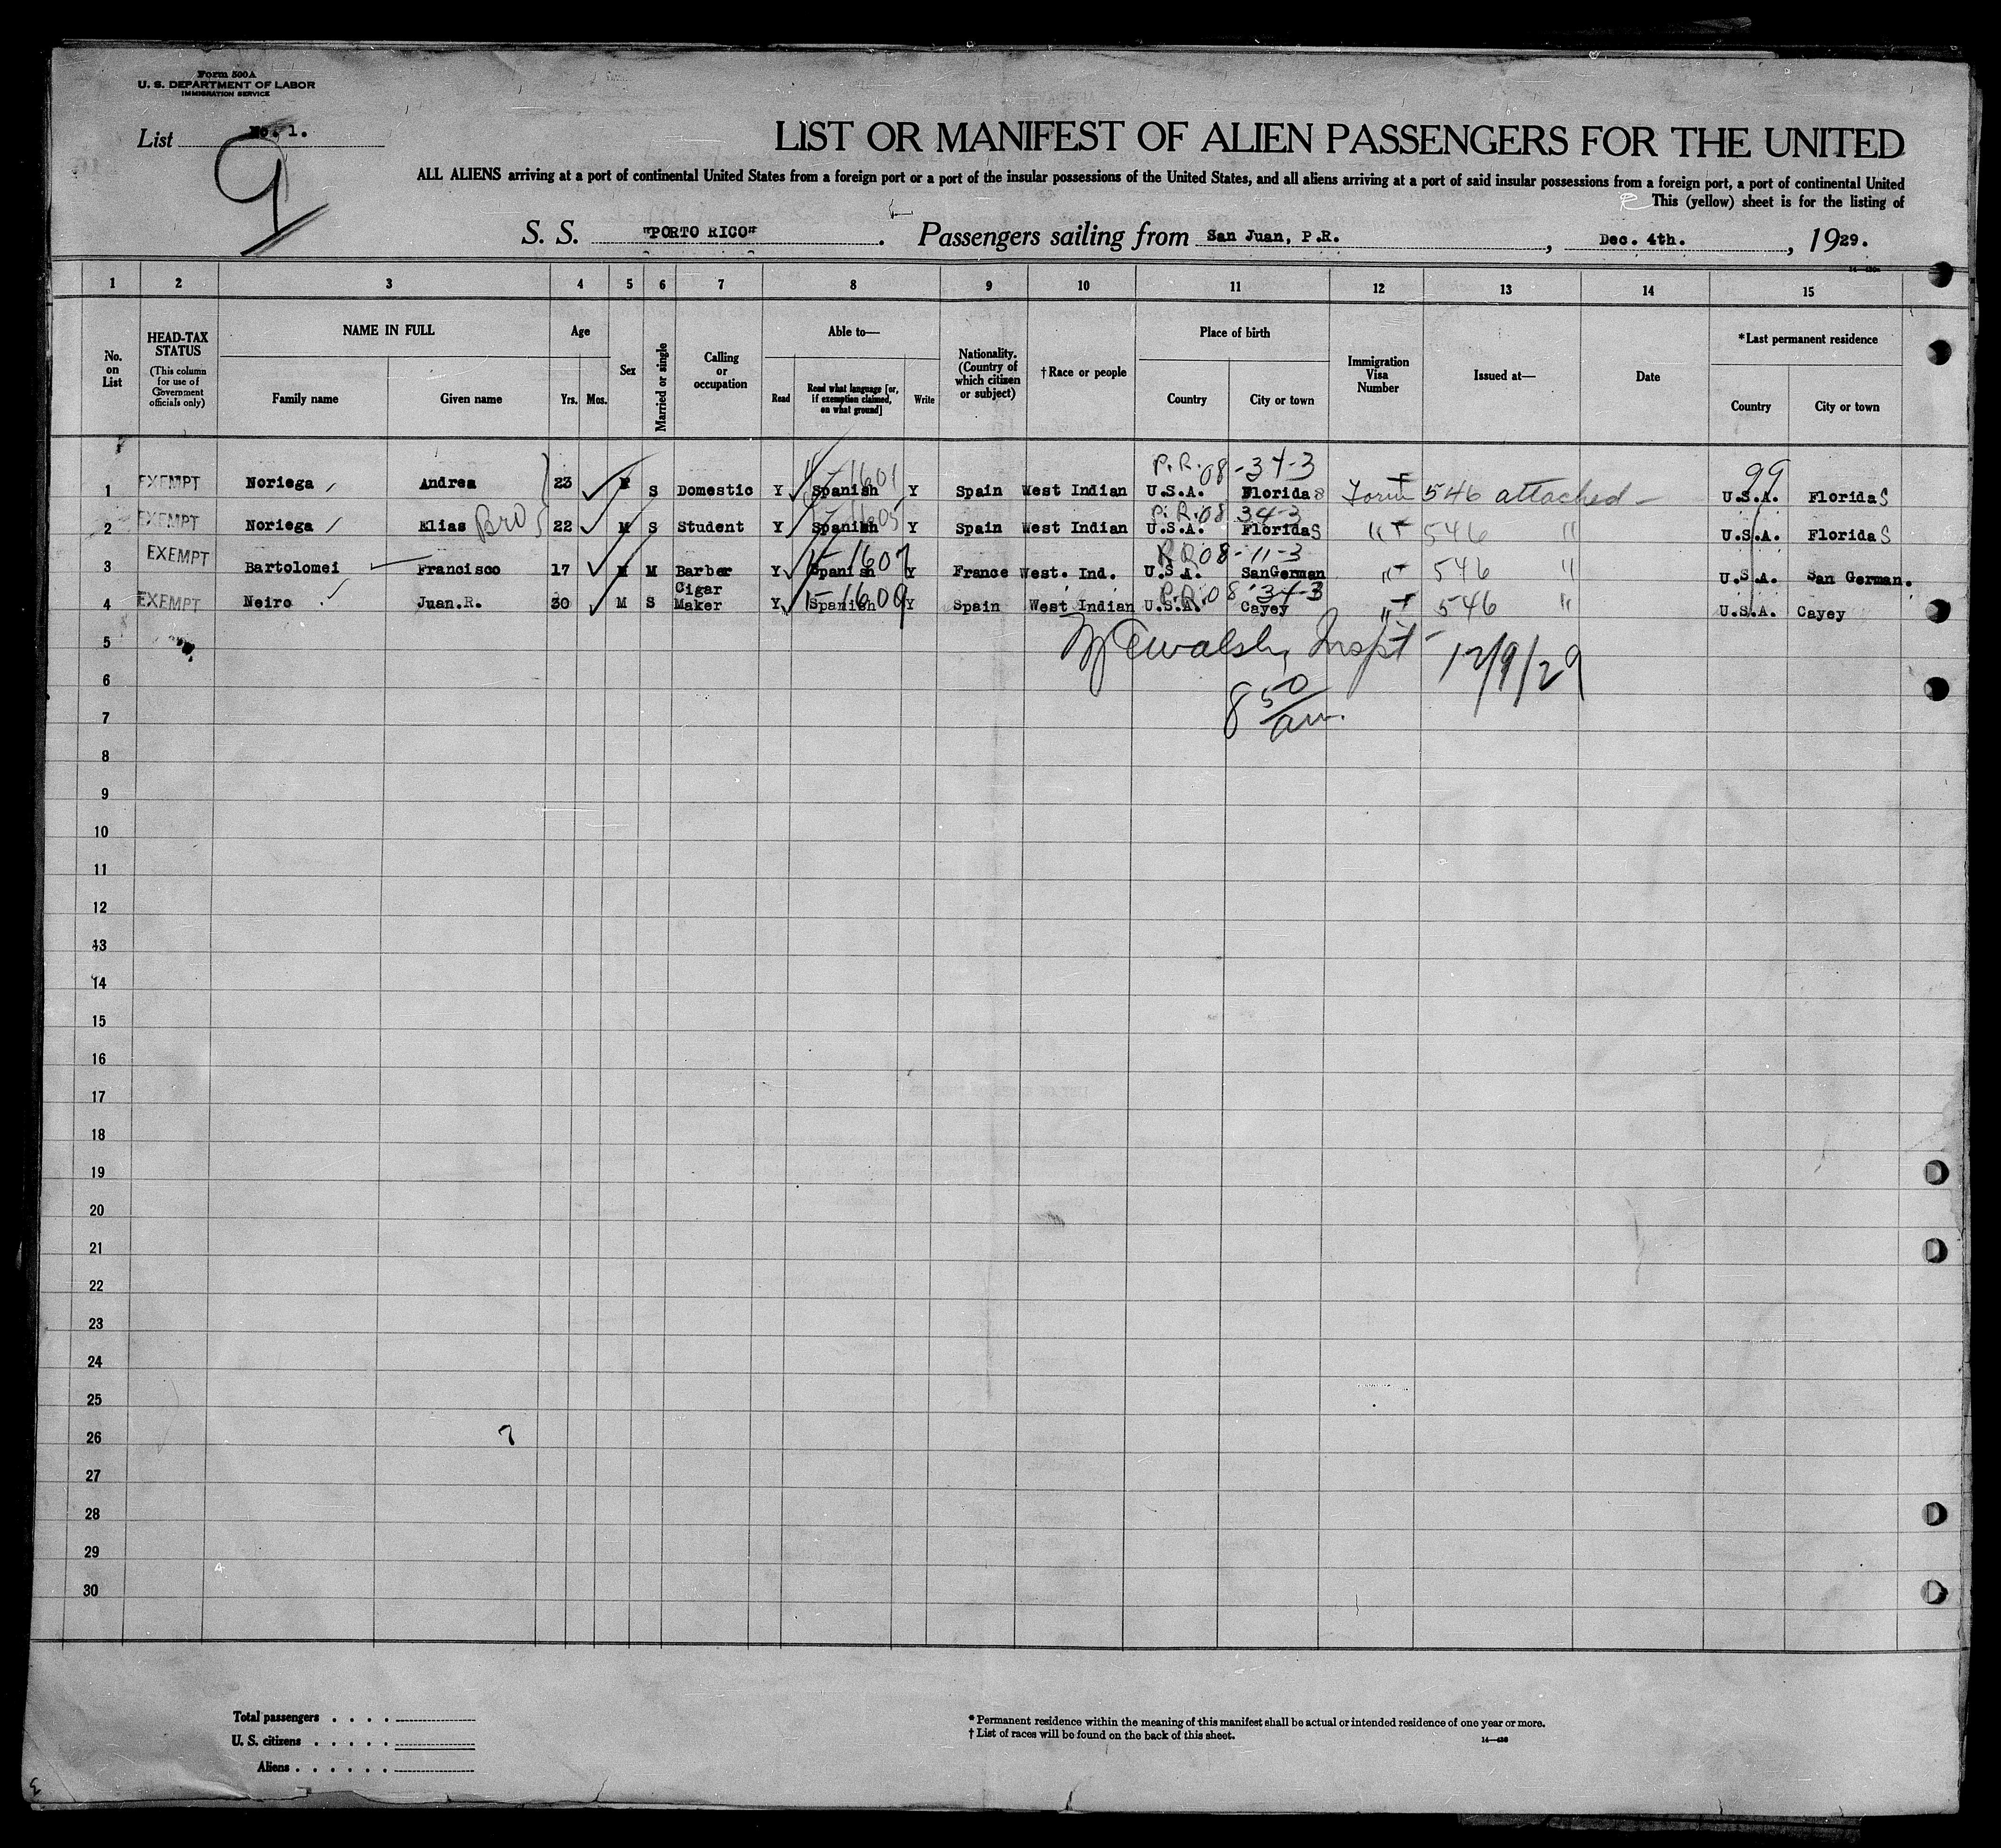 Form 500A
U. S. DEPARTMENT OF LABOR
IMMIGRATION SERVICE
List No. 1.
9
LIST OR MANIFEST OF ALIEN PASSENGERS FOR THE UNITED
ALL ALIENS arriving at a port of continental United States from a foreign port or a port of the insular possessions of the United States, and all aliens arriving at a port of said insular possessions from a foreign port, a port of continental United
This (yellow) sheet is for the listing of
S. S. "PORTO RICO". Passengers sailing from San Juan, P.R., Dec. 4th., 1929.
1 2 3 4 5 6 7 8 9 10 11 12 13 14 15
No. on List
HEAD-TAX STATUS
(This column for use of Government officials only)
NAME IN FULL
Family name Given name
Age
Yrs. Mos.
Sex
Married or single
Calling or occupation
Able to—
Read
Read what language [or, if exemption claimed, on what ground]
Write
Nationality. (Country of which citizen or subject)
†Race or people
Place of birth
Country City or town
Immigration Visa Number
Issued at—
Date
*Last permanent residence
Country City or town
P.R. 08-34-3 99
1 EXEMPT Noriega Andrea 23 F S Domestic Y Spanish Y Spain West Indian U.S.A. Floridas Form 546 attached - U.S.A. Floridas
P.R. 08 34-3
2 EXEMPT Noriega Elias Bro 22 M S Student Y Spanish Y Spain West Indian U.S.A. Floridas " 546 " U.S.A. Floridas
08-11-3
3 EXEMPT Bartolomei Francisco 17 M M Barber Y Spanish Y France West. Ind. U.S.A. SanGerman " 546 " U.S.A. San German.
P.R. 08 34-3
4 EXEMPT Neiro Juan.R. 30 M S Cigar Maker Y Spanish Y Spain West Indian U.S.A. Cayey " 546 " U.S.A. Cayey
5
Walsh, Inspt - 12/9/29
6
8 50/am.
7
8
9
10
11
12
13
14
15
16
17
18
19
20
21
22
23
24
25
26
27
28
29
30
Total passengers . . . .
U. S. citizens . . . . .
Aliens . . . . . .
* Permanent residence within the meaning of this manifest shall be actual or intended residence of one year or more.
† List of races will be found on the back of this sheet.